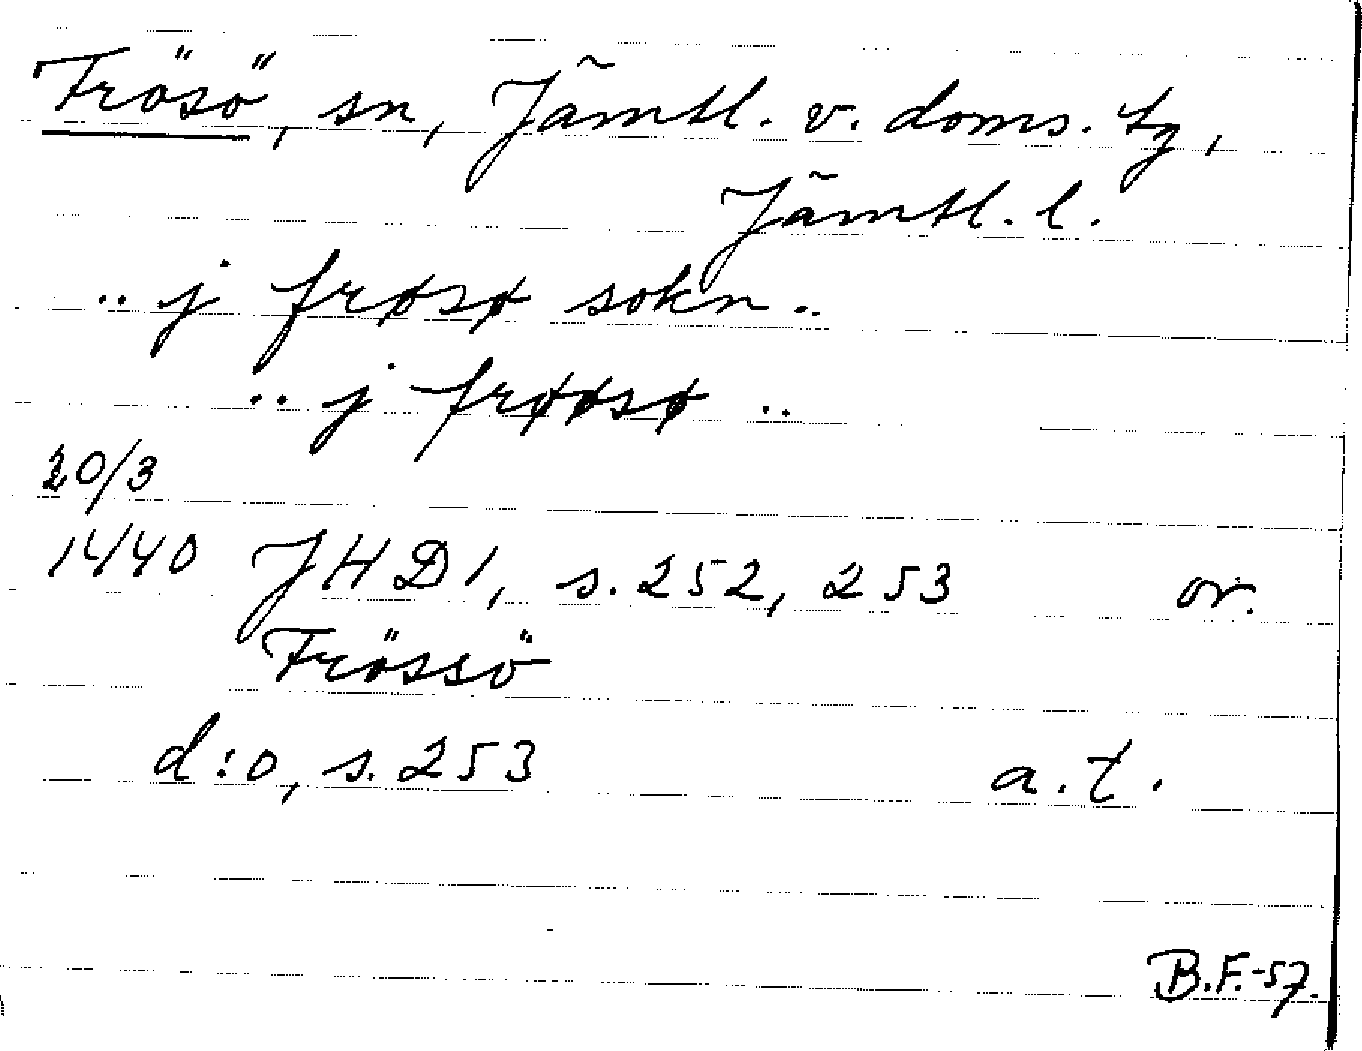 Frösö, sn, Jämtl. v. doms. tg,
Jämtl. l.
.. j frøsø sokn ..
.. j frøøsø ..
20/3
1440 JHD 1, s. 252, 253 or.
Frössö
d:o, s. 253 a.t.
B.F.-57.